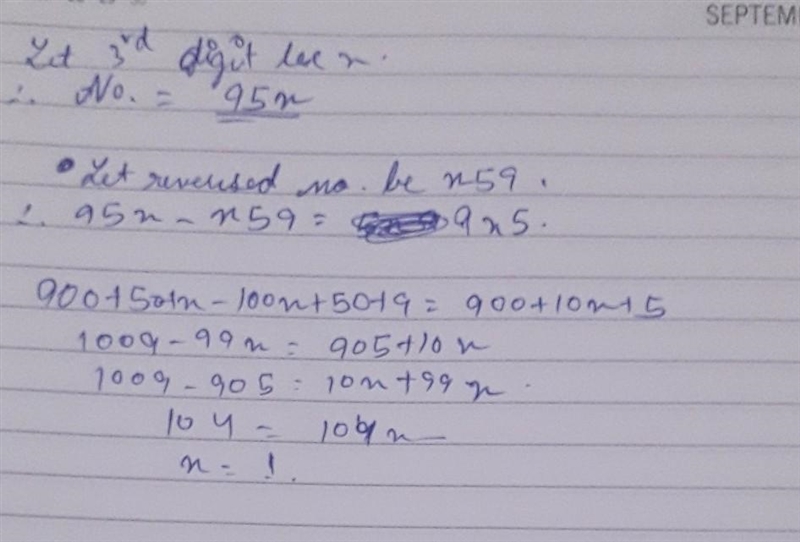 SEPTEM
Let 3rd digit be x.
∴ No. = 95x
• Let reversed no. be x59.
∴ 95x - x59 = 9x5.
900+50+x - 100x+50+9 = 900+10x+5
1009 - 99x = 905+10x
1009 - 905 = 10x+99x
104 = 109x
x = 1.